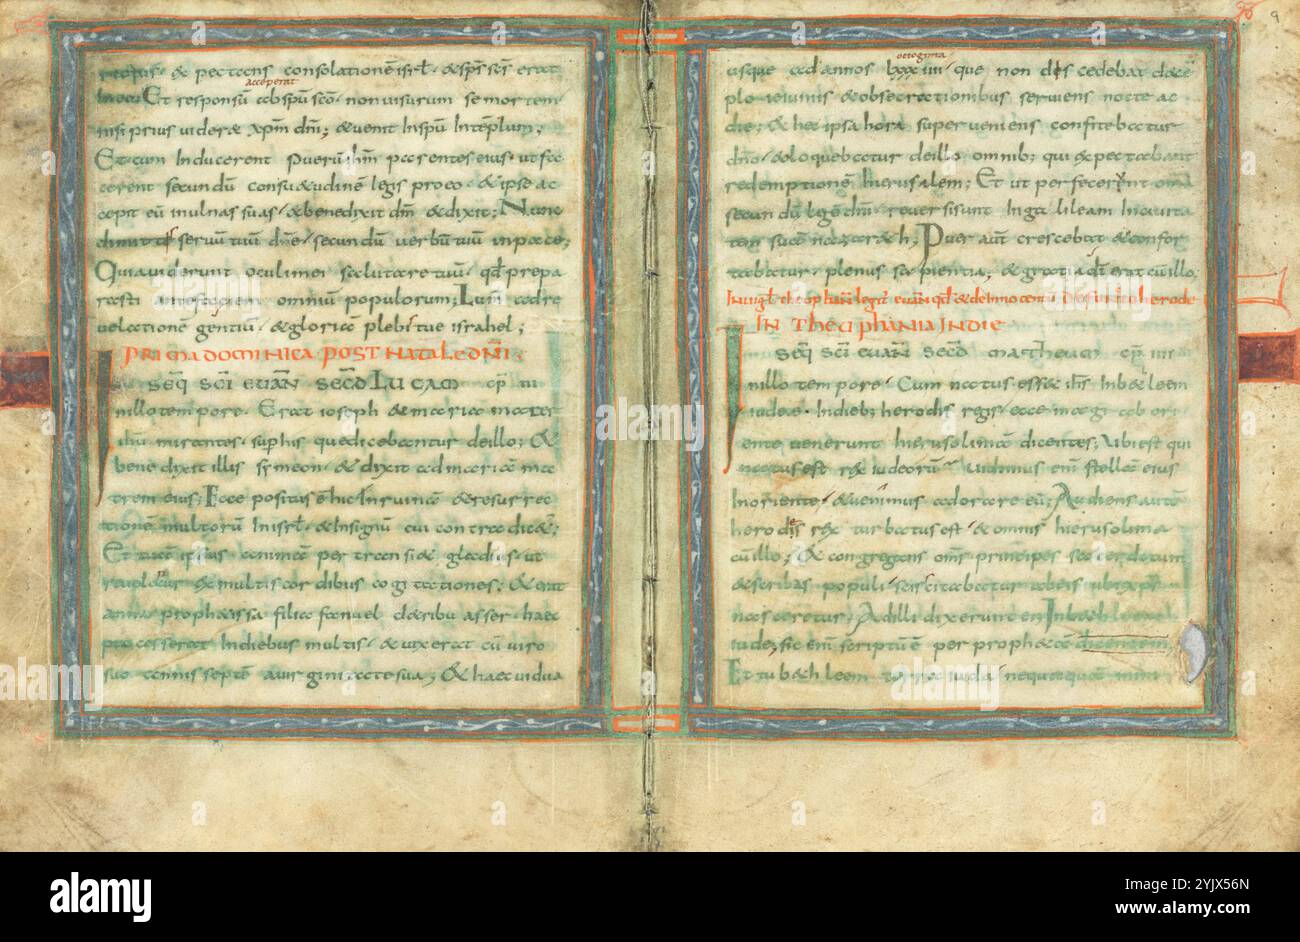 iustus & expectans consolationē isrl̄ & sp̄s sc̄s erat
acceperat
in eo; Et responsū ab sp̄u sc̄o non visurum se mortem
nisi prius videret xp̄m dn̄i; & venit in sp̄u In templum;
Et cum Inducerent puerū ih̄m parentes eius ut fa
cerent secundū consuetudinē legis pro eo & ipse ac
cepit eū in ulnas suas & benedixit dm̄ & dixit; Nunc
dimittis servū tuū dn̄e secundū verbū tuū in pace;
Quia viderunt oculi mei salutare tuū qđ prepa
rasti ante faciem omnium populorum; Lum ad re
velationē gentiū & gloriā plebis tue israhel;
PRIMA DOMINICA POST NATALE DN̄I;
SEQ̄ SC̄I EVAN̄ SEC̄D LUCAM cp̄ III
In illo tempore Erat ioseph & maria mater
ih̄u mirantes sup his que dicebantur de illo; &
benedixit illis symeon & dixit ad mariā ma
trem eius; Ecce positus ē hic In ruinā & resurrec
tionē multorū In isrl̄ & In signū cui contradic&;
Et tuā ipsius animā pertransi& gladius ut
revelentur ex multis cordibus cogitationes; & erat
anna proph&issa filia fanuel de tribu asser haec
processerat In diebus multis & vixerat cū viro
suo annis septē a virginitate sua; & haec vidua
9
octoginta
usque ad annos lxxxiiii que non discedebat de tē
plo ieiuniis & obsecrationibus serviens nocte ac
die; & hec ipsa hora superveniens confitebatur
dn̄o & loquebatur de illo omnib; qui expectabant
redemptionē hierusalem; Et ut perfecerunt om̄a
secundū legē dn̄i reversi sunt In galileam In civita
tem suā nazareth; Puer aūt crescebat & confor
tabatur plenus sapientia; & gratia dī erat cū illo;
IN THEOPHANIA IN DIE
SEQ̄ SC̄I EVAN̄ SEC̄D MATTHEUM cp̄ III
In illo tempore Cum natus ess& ih̄s In b&hleem
iudeae In dieb; herodis regis ecce magi ab ori
ente venerunt hierusolimā dicentes; Ubi est qui
natus est rex iudeorū vidimus eni stellā eius
In oriente & venimus adorare eū; Audiens autē
herodes rex turbatus est & omnis hierusolima
cū illo; & congregans om̄s principes sacerdotum
& scribas populi sciscitabatur ab eis ubi xp̄s
nasceretur; At illi dixerunt ei In b&hleem
iude; sic enī scriptū ē per proph&ā dicentem;
Et tu b&hleem terra iuda nequaquā mini
alamy
Image ID: 2YJX56N
www.alamy.com